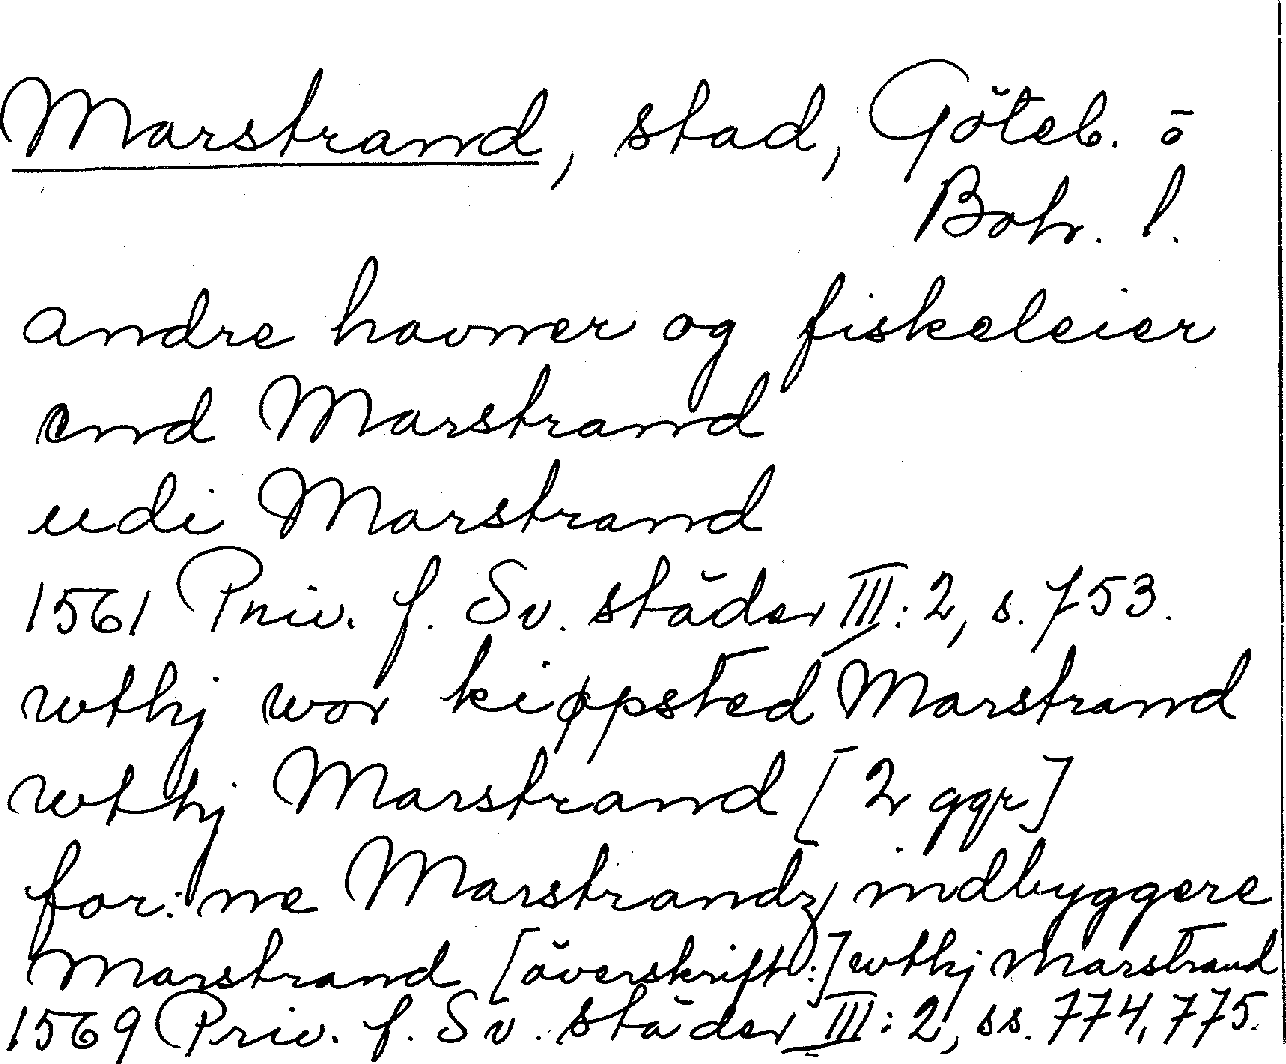 Marstrand, stad, Göteb. o
Boh. l.
andre havner og fiskeleier
end Marstrand
udi Marstrand
1561 Priv. f. Sv. städer III: 2, s. 753.
wthj wor kiøpsted Marstrand
wthj Marstrand [2 ggr]
for:ne Marstrandz indbyggere
Marstrand [överskrift:] wthj Marstrand
1569 Priv. f. Sv. städer III: 2, ss. 774, 775.